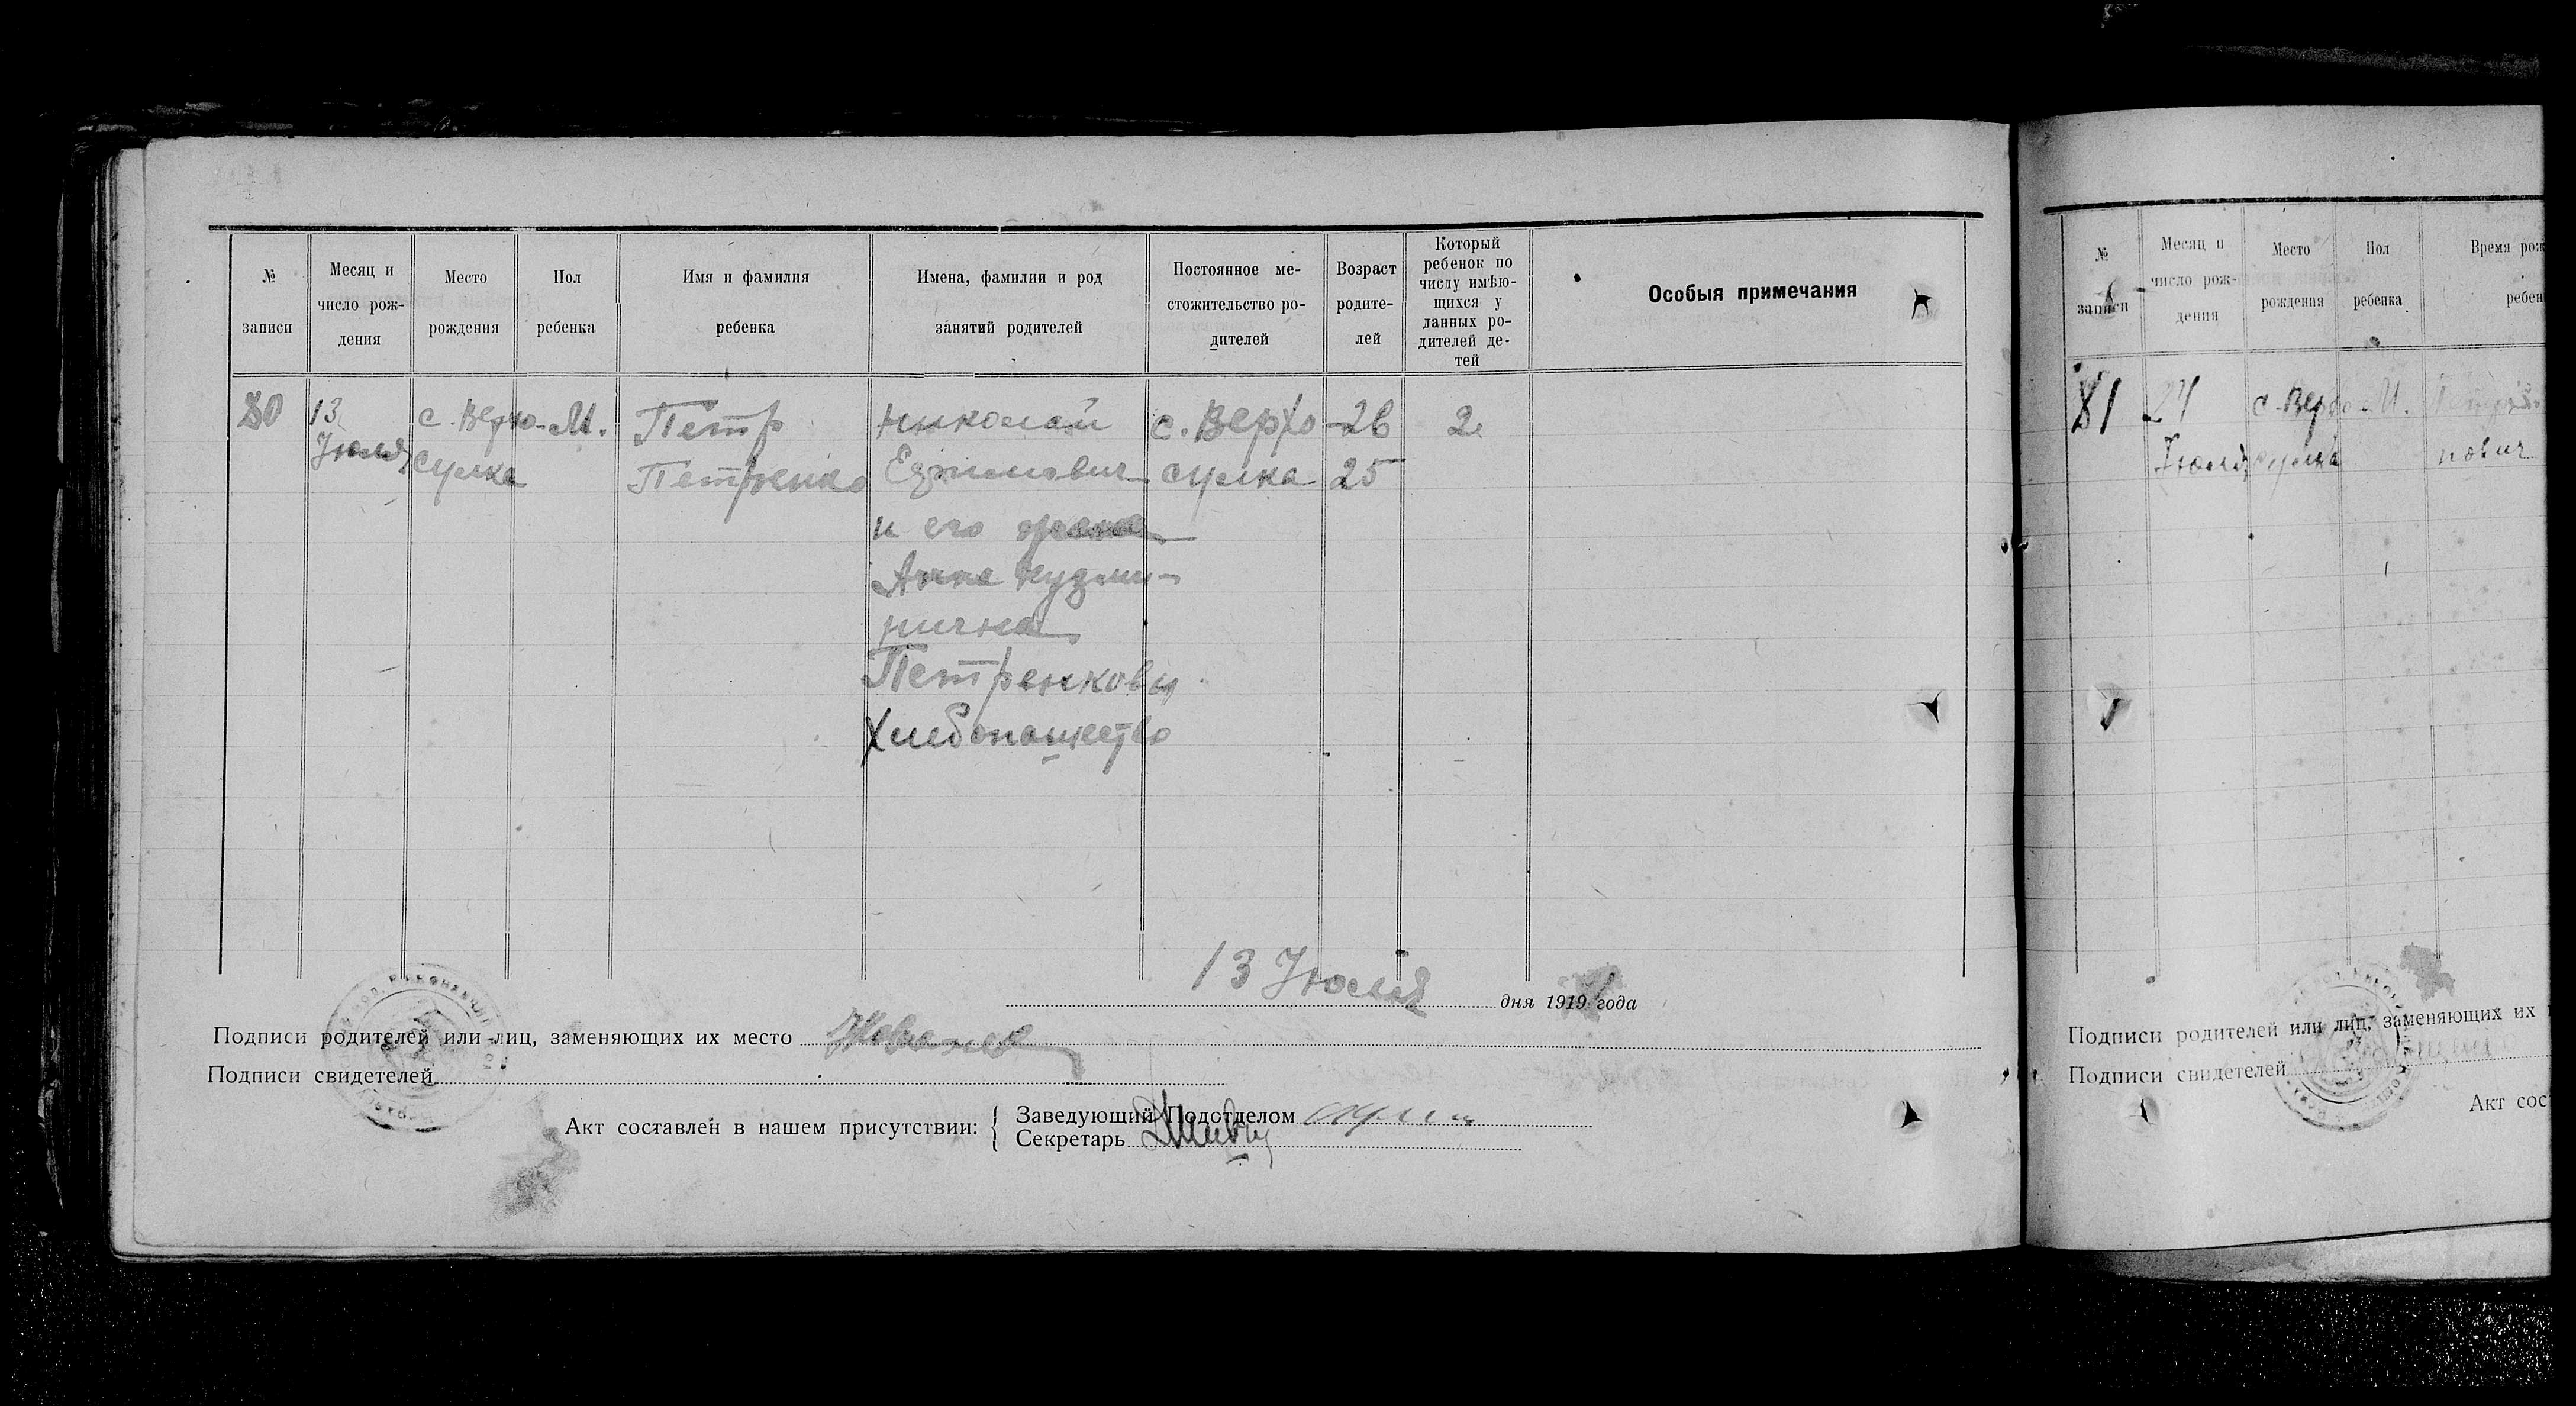 № записи
Месяц и число рождения
Место рождения
Пол ребенка
Имя и фамилия ребенка
Имена, фамилии и род занятий родителей
Постоянное ме-
стожительство ро-
дителей
Возраст
родите-
лей
Который
ребенок по
числу имѣю-
щихся у
данных ро-
дителей де-
тей
Особыя примечания
80
13
Июля
с. Верхо-
сулка
М.
Петр
Петренко
Николай
и его жена
Анна Кузми-
нична
Петренковы
Хлебопашество
с. Верхо
сулка
26
25
2
13 Июля дня 1919 года
Подписи родителей или лиц, заменяющих их место
Подписи свидетелей
Акт составлен в нашем присутствии:
Заведующий Подотделом
Секретарь
№
записи
Месяц и
число рож-
дения
Место
рождения
Пол
ребенка
Время рож
ребен
81
24
Июля
с. Верхо
сулка
М.
нович
Подписи родителей или лиц, заменяющих их
Подписи свидетелей
Акт сос